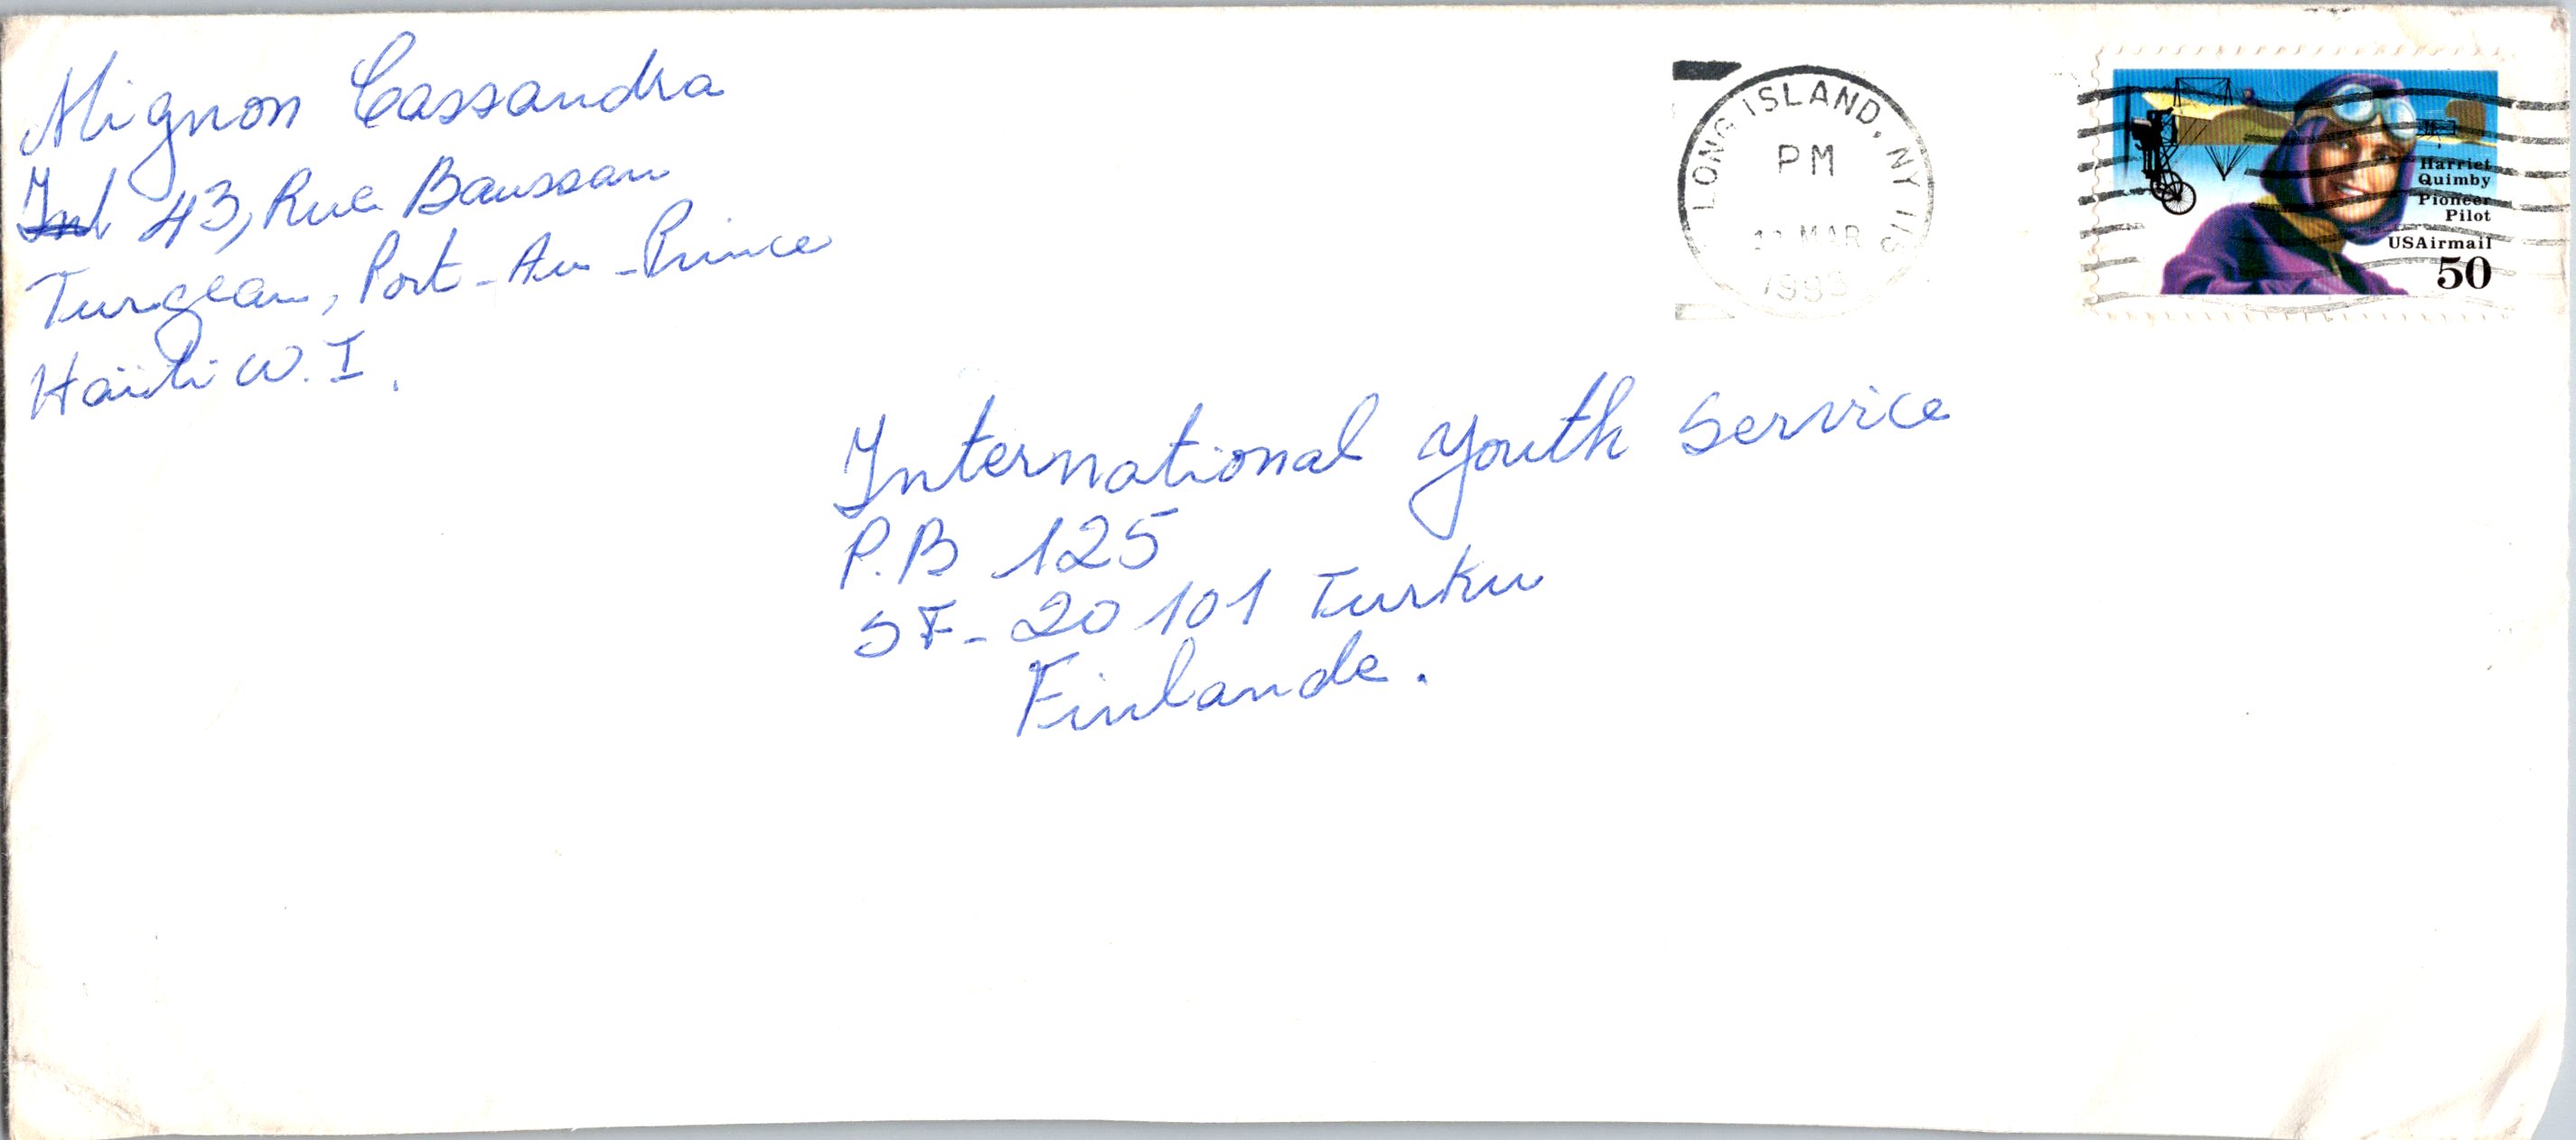 Mignon Cassandra
43, Rue Baussan
Turgeau, Port-Au-Prince
Haïti W.I.
LONG ISLAND, NY
PM
MAR
Harriet
Quimby
Pioneer
Pilot
USAirmail
50
International Youth Service
P.B 125
SF-20101 Turku
Finlande.